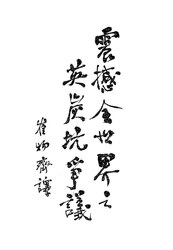 震撼全世界之
英炭坑爭議
崔物齋譯